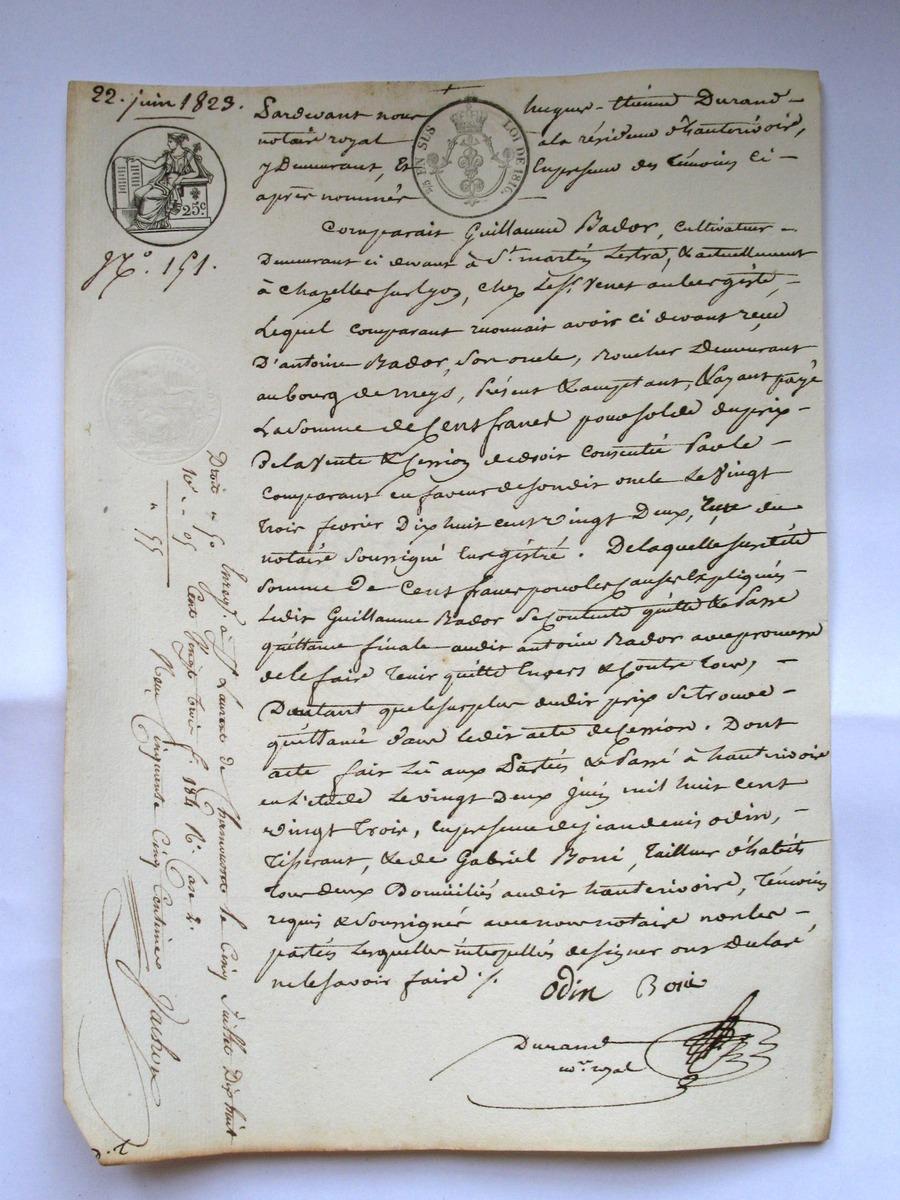 22. juin 1823.
Pardevant nous hugues-étienne Durand
notaire royal à la résidence d'hauterivoire,
y Demeurant, Et En presence des témoins Ci-
après nommés
EN SUS LOI DE 1816.
25c
No. 151.
Comparait Guillaume Bador, cultivateur
Demeurant ci devant à St. martin Lestra, & actuellement
à Chazelles sur lyon, chez le Sr. Venet aubergiste,
Lequel comparant reconnait avoir ci devant reçu
D'antoine Bador, son oncle, Demeurant
au bourg de meys, présent & acceptant, & ayant payé
La somme de Cent francs pour solde du prix
De la Vente & Cession de droit Consentie Par le
Comparant en faveur de son dit oncle Le Vingt
trois fevrier Dix huit cent vingt Deux, reçue du
notaire soussigné Enregistré. De laquelle susdite
Somme De Cent francs pour les causes Expliqués
Ledit Guillaume Bador Se Contente quitte & Passe
quittance finale audit antoine Bador avec promesse
de le faire tenir quitte Envers & Contre tous,
D'autant que le surplus dudit prix se trouve
quittancé dans ledit acte de Cession. Dont
acte fait Lû aux Parties & Passé à hauterivoire
en L'étude Le vingt Deux juin mil huit cent
vingt trois, En presence de jean denis odin,
tisserant, & de Gabriel Boni, tailleur d'habits
tous deux Domiciliés audit hauterivoire, témoins
requis & Soussignés avec nous notaire non les
parties Lesquelles interpellés de signer ont déclaré
ne le savoir faire ./.
odin Boni
Durand
nore. royal
Droit " 50
10e " 05
" 55
Enregt. à St Laurent de Chamousset le Cinq Juillet Dix huit
Cent Vingt trois f. 184 Ro. Case 2.
Reçu Cinquante Cinq Centimes